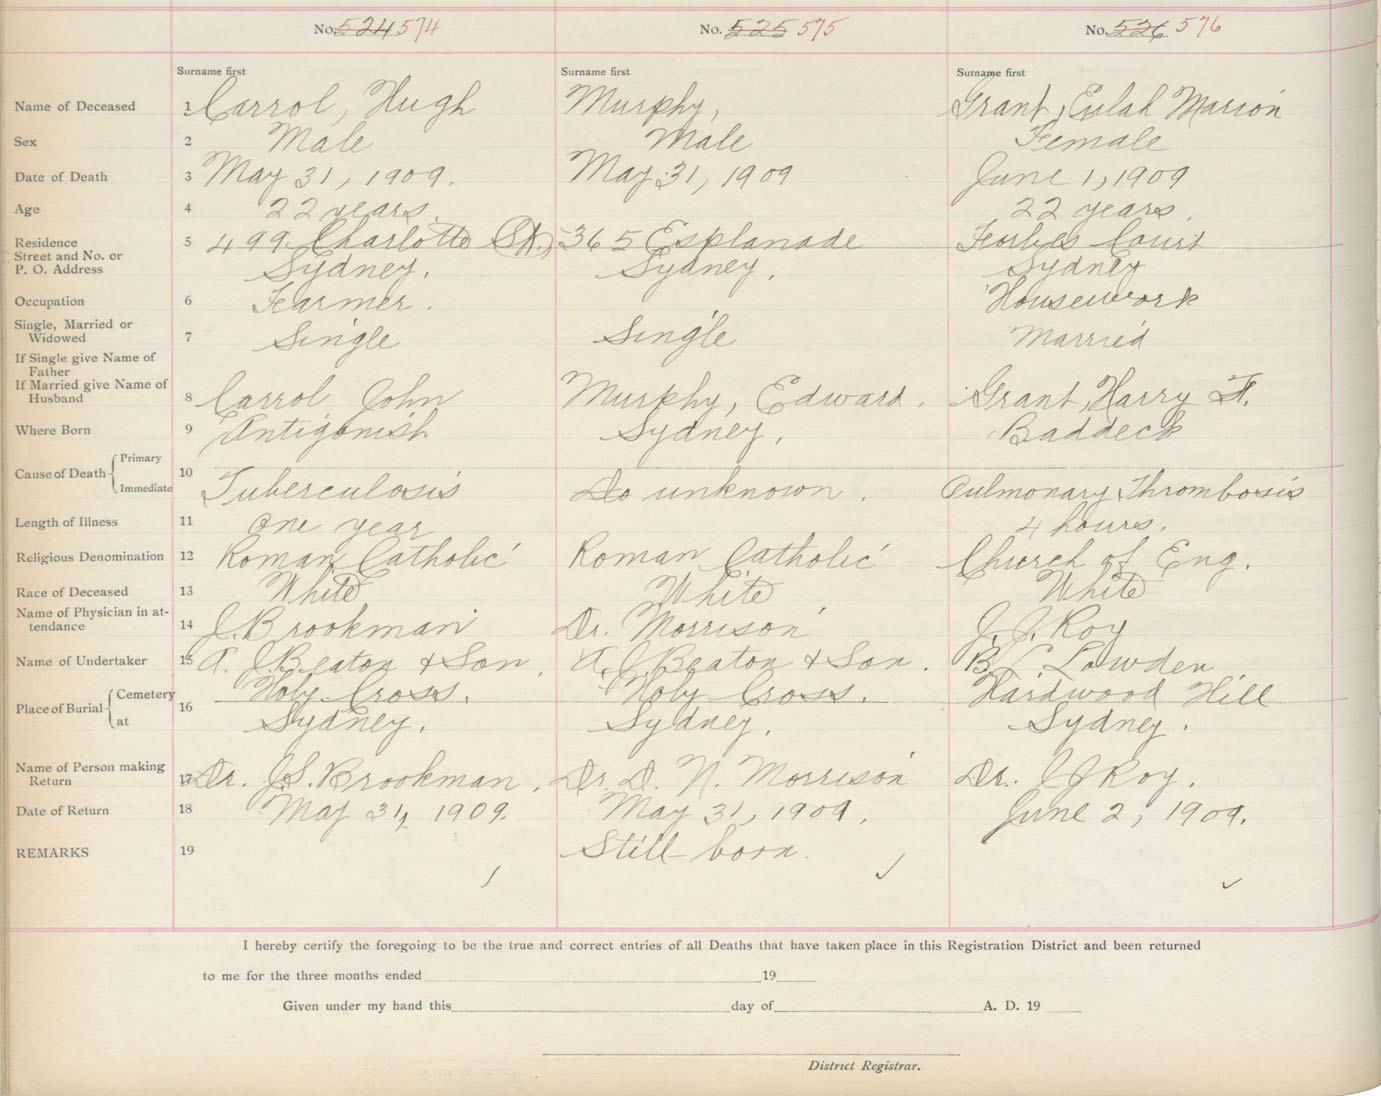 No. 524 574 No. 525 575 No. 526 576
Surname first Surname first Surname first
Name of Deceased 1 Carrol, Hugh Murphy, Grant, Eulah Marion
Sex 2 Male Male Female
Date of Death 3 May 31, 1909. May 31, 1909 June 1, 1909
Age 4 22 years. 22 years.
Residence 5 499 Charlotte St., 365 Esplanade Forbes Court
Street and No. or
P. O. Address Sydney. Sydney. Sydney
Occupation 6 Farmer. Housework
Single, Married or
Widowed 7 Single Single Married
If Single give Name of
Father
If Married give Name of
Husband 8 Carrol John Murphy, Edward. Grant, Harry F.
Where Born 9 Antigonish Sydney. Baddeck
Cause of Death Primary 10
Immediate Tuberculosis Do unknown. Pulmonary Thrombosis
Length of Illness 11 One year 4 hours.
Religious Denomination 12 Roman Catholic Roman Catholic Church of Eng.
Race of Deceased 13 White White White
Name of Physician in at-
tendance 14 J. Brookman Dr. Morrison J. J. Roy
Name of Undertaker 15 A. J. Beaton & Son. A. J. Beaton & Son. Lowden
Place of Burial Cemetery 16 Holy Cross. Holy Cross. Hardwood Hill
at Sydney. Sydney. Sydney.
Name of Person making
Return 17 Dr. J. S. Brookman. Dr. D. N. Morrison Dr. J J Roy.
Date of Return 18 May 31, 1909. May 31, 1909. June 2, 1909.
REMARKS 19 Still born.
I hereby certify the foregoing to be the true and correct entries of all Deaths that have taken place in this Registration District and been returned
to me for the three months ended 19
Given under my hand this day of A. D. 19
District Registrar.